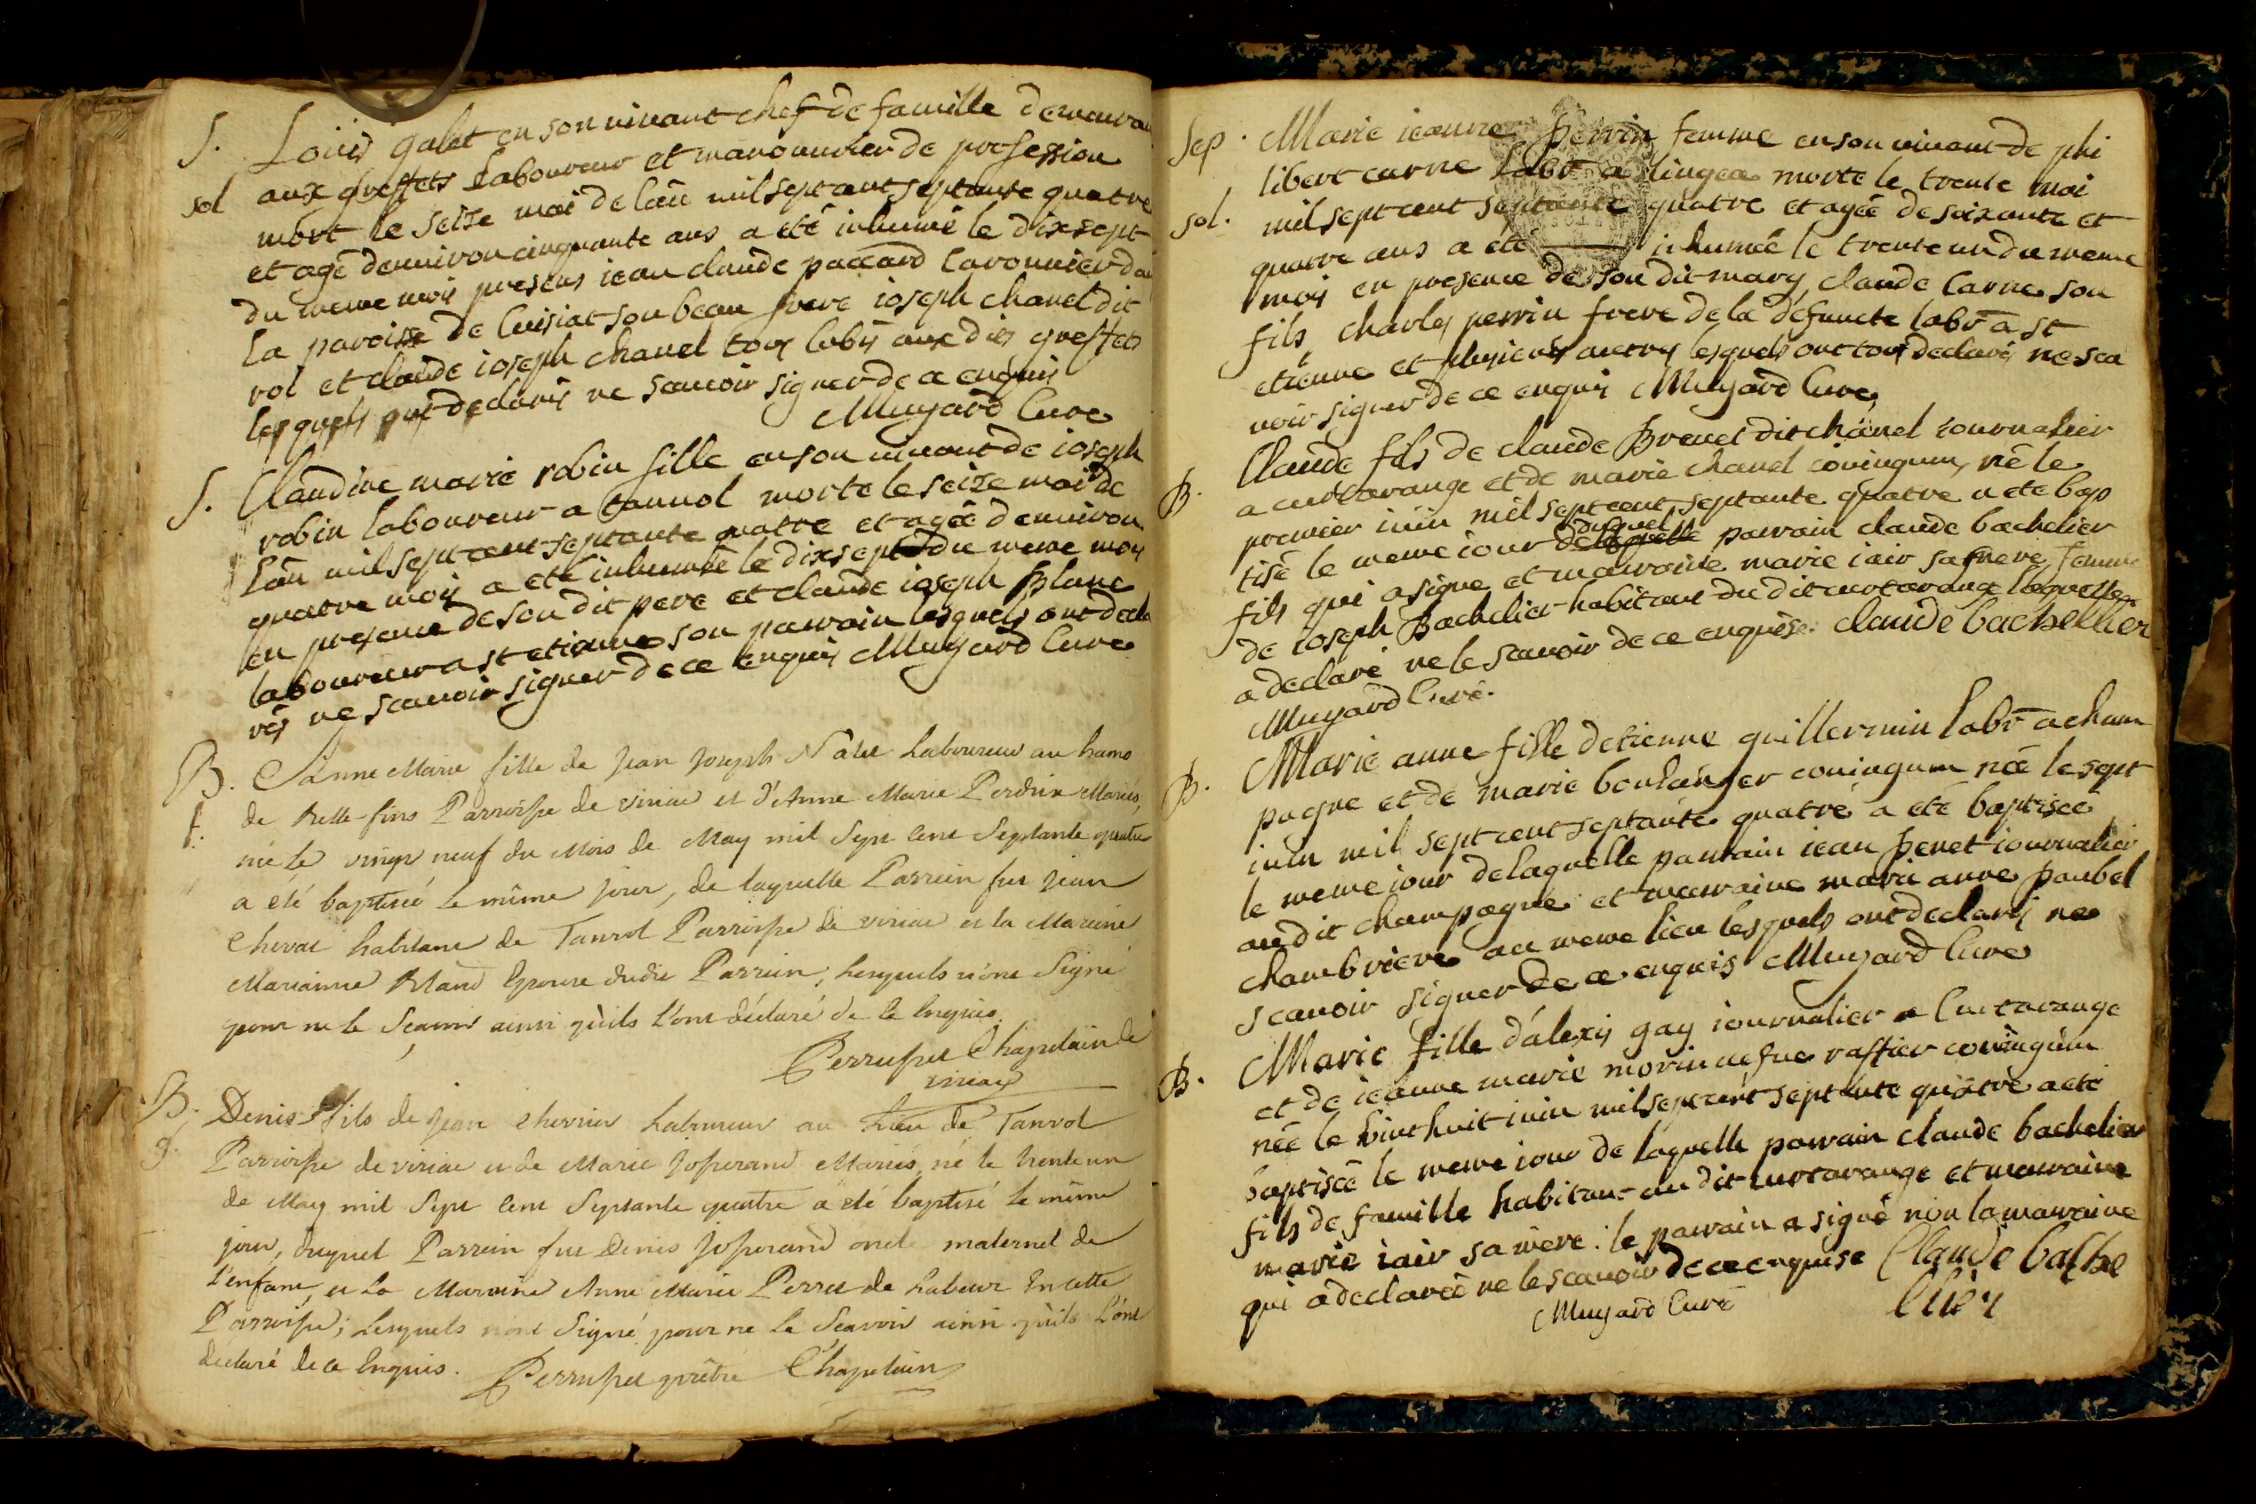 S. Loüis galet en son vivant chef de famille demeuran
sol aux greffets laboureur et manouvrier de profession
mort le seize mai de lan mil sept cent septante quatre
et agé denviron cinquante ans a eté inhumé le dix sept
du meme mois presens iean claude paccard
la paroisse de Cuisiat son beau frere ioseph chanel dit
rol et claude ioseph chanel tous aux dits greffets
lesquels ont declarés ne scavoir signer de ce enquis
Muyard Curé
S. Claudine marie robin fille en son vivant de ioseph
robin laboureur a tanvol morte le seize mai de
lan mil sept cent septante quatre et agée denviron
quatre mois a eté inhumée le dix sept du meme mois
en presence de son dit pere et claude ioseph blanc
laboureur a st etienne son parrain lesquels ont decla
rés ne scavoir signer de ce enquis Muyard Curé
B. Anne Marie fille de Jean Joseph Laboureur au hamo
f. de belle-fins Parroisse de viriac et d'Anne Marie Perdrix Mariés,
née le vingt neuf du Mois de May mil Sept Cent Septante quatre
a été baptisée le même jour, de laquelle Parrein fut Jean
habitant de Tanvol Parroisse de viriac et la Mareine
Marianne Epouse dudit Parrein, Lesquels n'ont Signé
pour ne le Scavoir ainsi qu'ils l'ont déclaré de ce Enquis.
Chapelain de
viriac
B. Denis fils de jean chevrier Laboureur au Lieu de Tanvol
g. Parroisse de viriac et de Marie Josserand Mariés, né le trente un
de May mil Sept Cent Septante quatre a été baptisé le même
jour, duquel Parrein fut Denis Josserand oncle maternel de
L'enfant, et La Mareine Anne Marie Perret de Labeur En cette
Parroisse; Lesquels n'ont Signé pour ne Le Scavoir ainsi qu'ils L'ont
declaré de ce Enquis. prêtre Chapelain
Sep. Marie ieanne perrin femme en son vivant de phi
libert carne labr a lingea morte le trente mai
sol. mil sept cent septante quatre et agée de soixante et
quatre ans a eté inhumée le trente un du meme
mois en presence de son dit mary, claude Carne son
fils charles perrin frere de la défuncte labr a st
etienne et plusieurs autres lesquels ont tous declarés ne sca
voir signer de ce enquis Muyard Curé
B. Claude fils de claude brevet dit chanel iournalier
a curtarange et de marie chanel coniugum, né le
premier iuin mil sept cent septante quatre a eté bap
tisé le meme iour de laquelle duquel parrain claude bachelier
fils qui a signe et marraine marie iair sa mere, femme
de ioseph Bachelier habitant du dit curtarange laquelle
a declaré ne le scavoir de ce enquise. claude bachellier
Muyard Curé.
B. Marie anne fille detienne guillermin labr a cham
pagne et de marie boulanger coniugum née le sept
iuin mil sept cent septante quatre a eté baptisée
le meme iour de laquelle parrain iean penet iournalier
au dit champagne et marraine marie anne paubel
chambriere au meme lieu lesquels ont declarés ne
scavoir signer de ce enquis Muyard Curé
B. Marie fille d'alexis gay iournalier a Curtarange
et de ieanne marie morin coniugum
née le vint huit iuin mil sept cent septante quatre a eté
baptisée le meme iour de laquelle parrain claude bachelier
fils de famille habitant au dit curtarange et marraine
marie iair sa mère. le parrain a signé non la marraine
qui a declarée ne le scavoir de ce enquise Claude bache
Muyard Curé llier